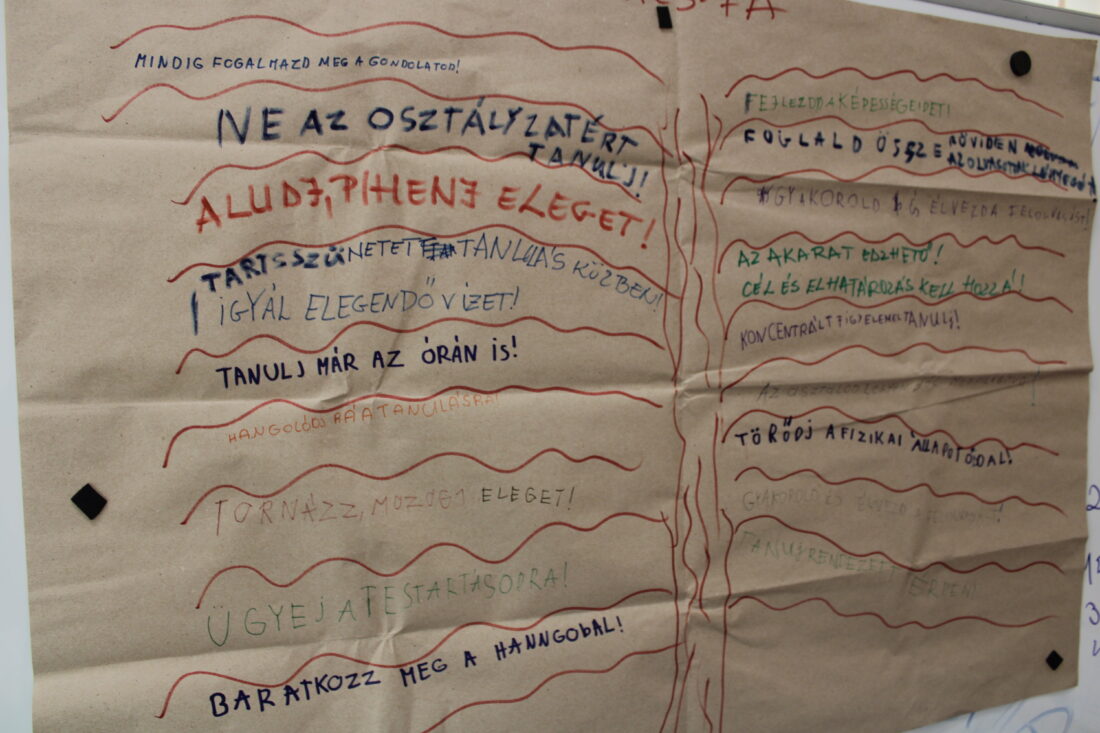 MINDIG FOGALMAZD MEG A GONDOLATOD!
NE AZ OSZTÁLYZATÉRT
TANULJ!
ALUDJ, PIHENJ ELEGET!
TARTS SZÜNETET TANULÁS KÖZBEN!
IGYÁL ELEGENDŐ VIZET!
TANULJ MÁR AZ ÓRÁN IS!
HANGOLÓDJ RÁ A TANULÁSRA!
TORNÁZZ, MOZOGJ ELEGET!
ÜGYEJ A TESTARTÁSODRA!
BARATKOZZ MEG A HANNGOBAL!
FEJLEZDD A KÉPESSÉGEIDET!
FOGLALD ÖSSZE RÖVIDEN
AZ OLVASOTTAK LÉNYEGÉT!
GYAKOROLD ÉS ÉLVEZD A FELOLVASÁST!
AZ AKARAT EDZHETŐ!
CÉL ÉS ELHATÁROZÁS KELL HOZZÁ!
KONCENTRÁLT FIGYELEMEL TANULJ!
AZ
TÖRŐDJ A FIZIKAI ÁLLAPOTODAL!
GYAKOROLD ÉS ÉLVEZD A FELOLVASÁST!
TANULJ RENDEZETT TÉRBEN!